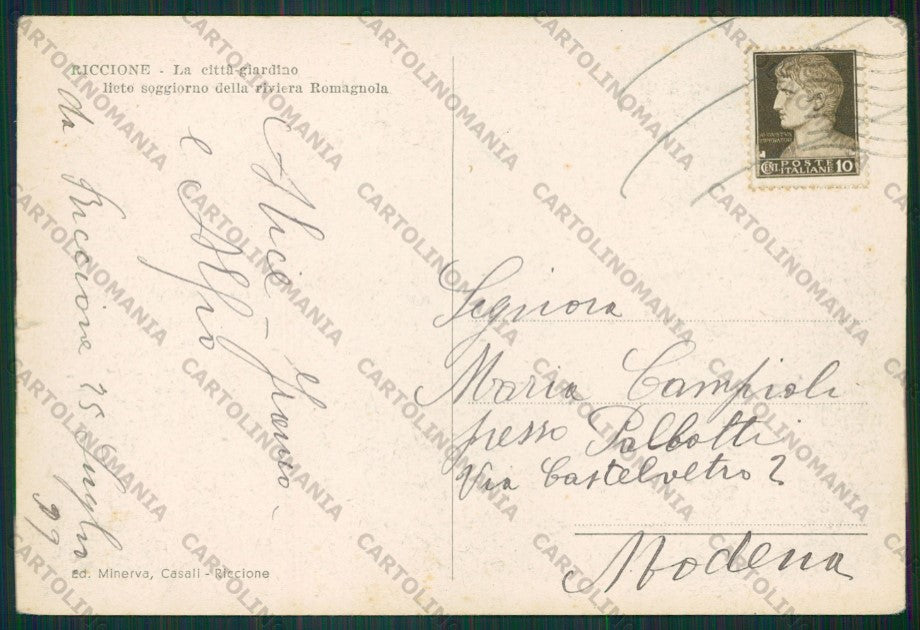 RICCIONE - La città-giardino
lieto soggiorno della riviera Romagnola
da Riccione 25 Luglio
Alice
e Alfio
AUGVSTVS
IMPERATOR
CENT. POSTE ITALIANE 10
Signora
Maria Campioli
presso Palbotti
Via Castelvetro 2
Modena
Ed. Minerva, Casali - Riccione
CARTOLINOMANIA